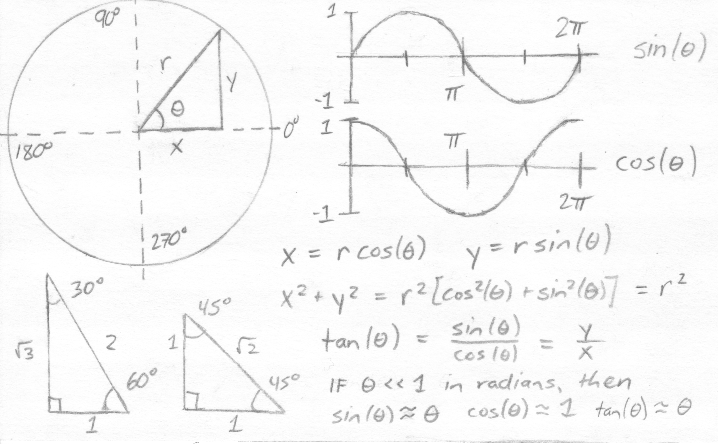 90°
r
y
θ
x
0°
180°
270°
1
-1
π
2π
sin(θ)
1
-1
π
2π
cos(θ)
x = r cos(θ) y = r sin(θ)
x² + y² = r² [cos²(θ) + sin²(θ)] = r²
tan(θ) = sin(θ)/cos(θ) = y/x
IF θ << 1 in radians, then
sin(θ) ≈ θ cos(θ) ≈ 1 tan(θ) ≈ θ
30°
√3
2
60°
1
45°
1
√2
45°
1